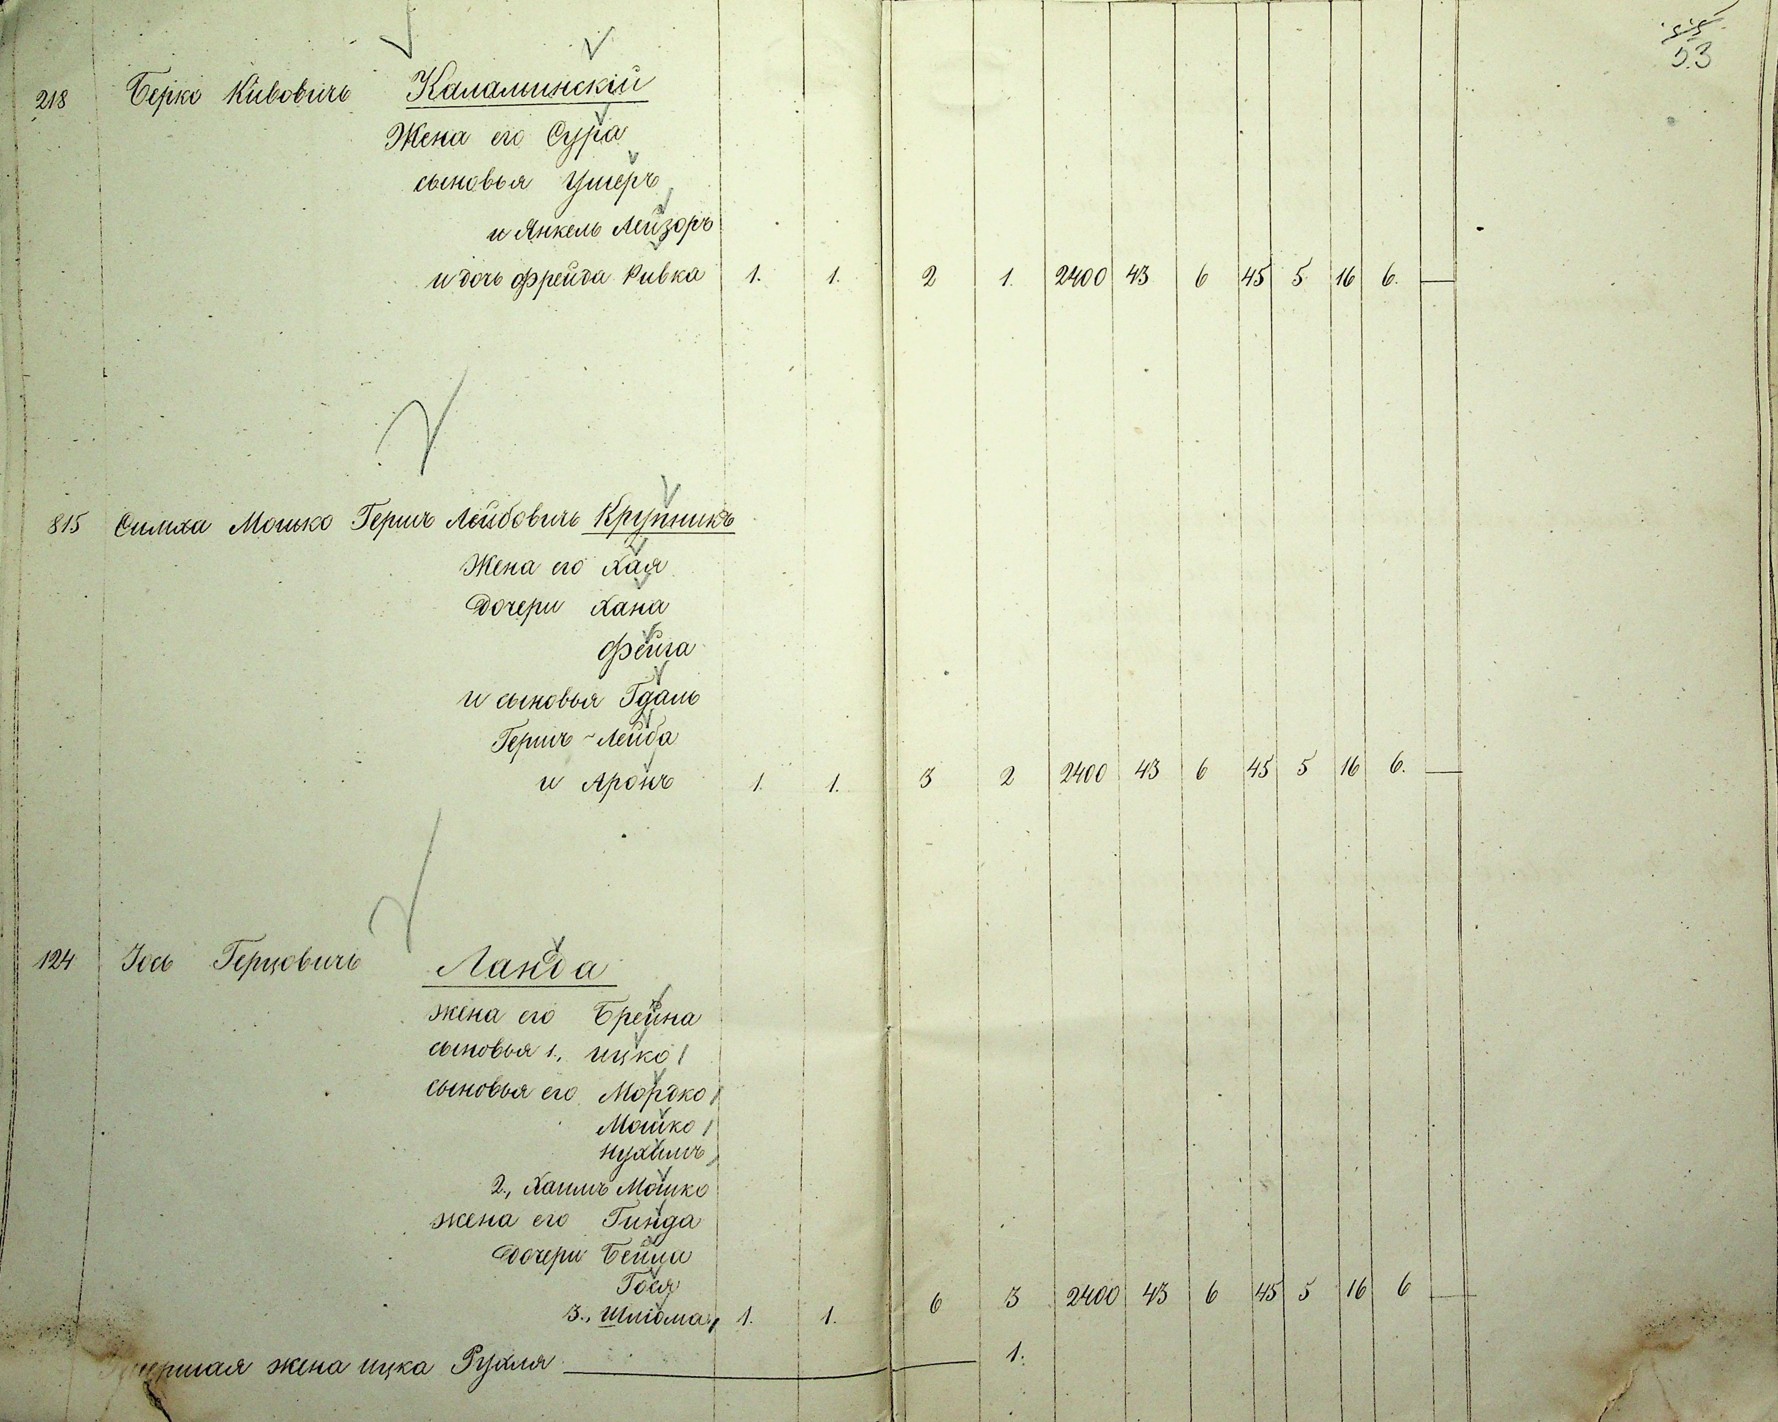 53
218 Берко Кивовичъ Каламинскій
Жена его Сура
сыновья Ушеръ
и Янкель Лейзоръ
и дочь Фрейда Ривка 1. 1. 2 1. 2400 43 6 45 5 16 6. —
815 Симха Мошко Гершъ Лейбовичъ Крупникъ
Жена его Хая
Дочери Хана
Фейга
и сыновья Гдаль
Гершъ-Лейба
и Аронъ 1. 1. 3 2 2400 43 6 45 5 16 6. —
124 Іось Герцовичъ Ланда
жена его Брейна
сыновья 1., Ицко
сыновья его Мордко
Мошко
Нухимъ
2., Хаимъ Мошко
жена его Гинда
Дочери Бейли
Гося
3., Шліома 1. 1. 6 3 2400 43 6 45 5 16 6 —
Умершая жена Ицка Рухля — 1.